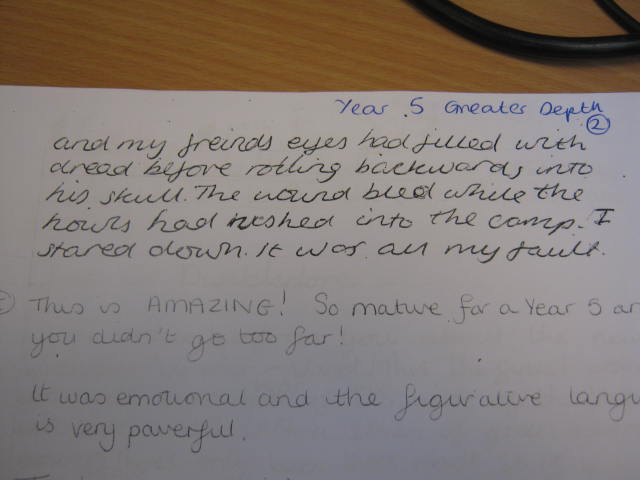 Year 5 Greater Depth
2
and my freinds eyes had filled with
dread before rolling backwards into
his skull. The wound bled while the
hours had rushed into the camp. I
stared down. It was all my fault.
This is AMAZING! So mature for a Year 5 an
you didn't go too far!
It was emotional and the figurative langu
is very powerful.